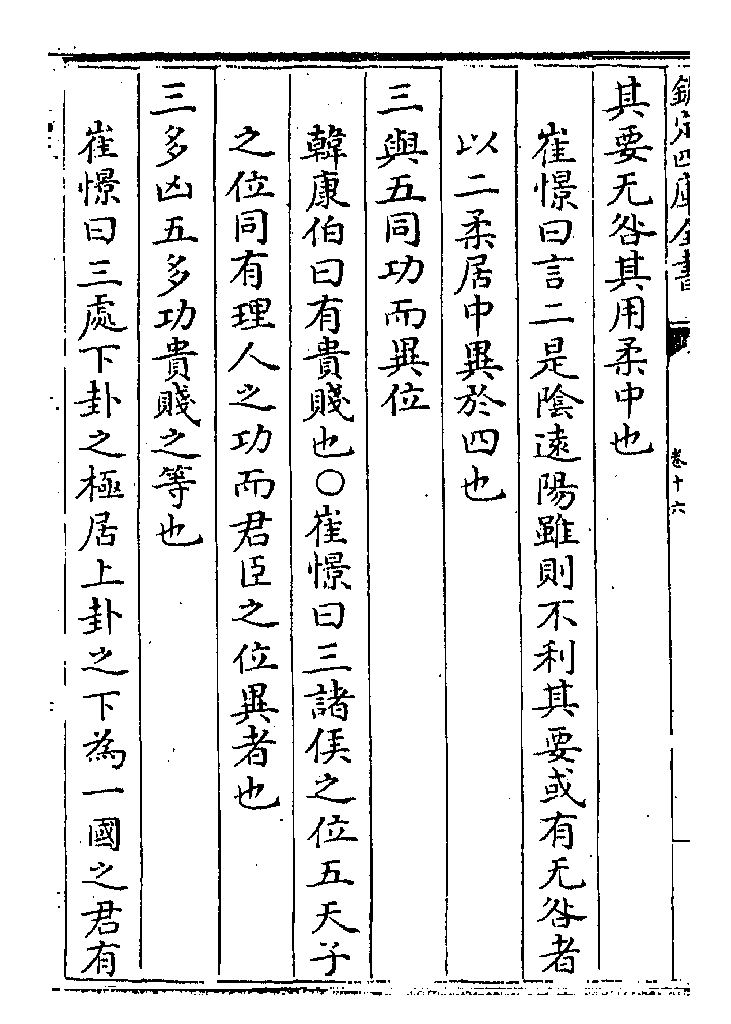 欽定四庫全書
卷十六
其要无咎其用柔中也
崔憬曰言二是陰逺陽雖則不利其要或有无咎者
以二柔居中異於四也
三與五同功而異位
韓康伯曰有貴賤也○崔憬曰三諸侯之位五天子
之位同有理人之功而君臣之位異者也
三多凶五多功貴賤之等也
崔憬曰三處下卦之極居上卦之下為一國之君有